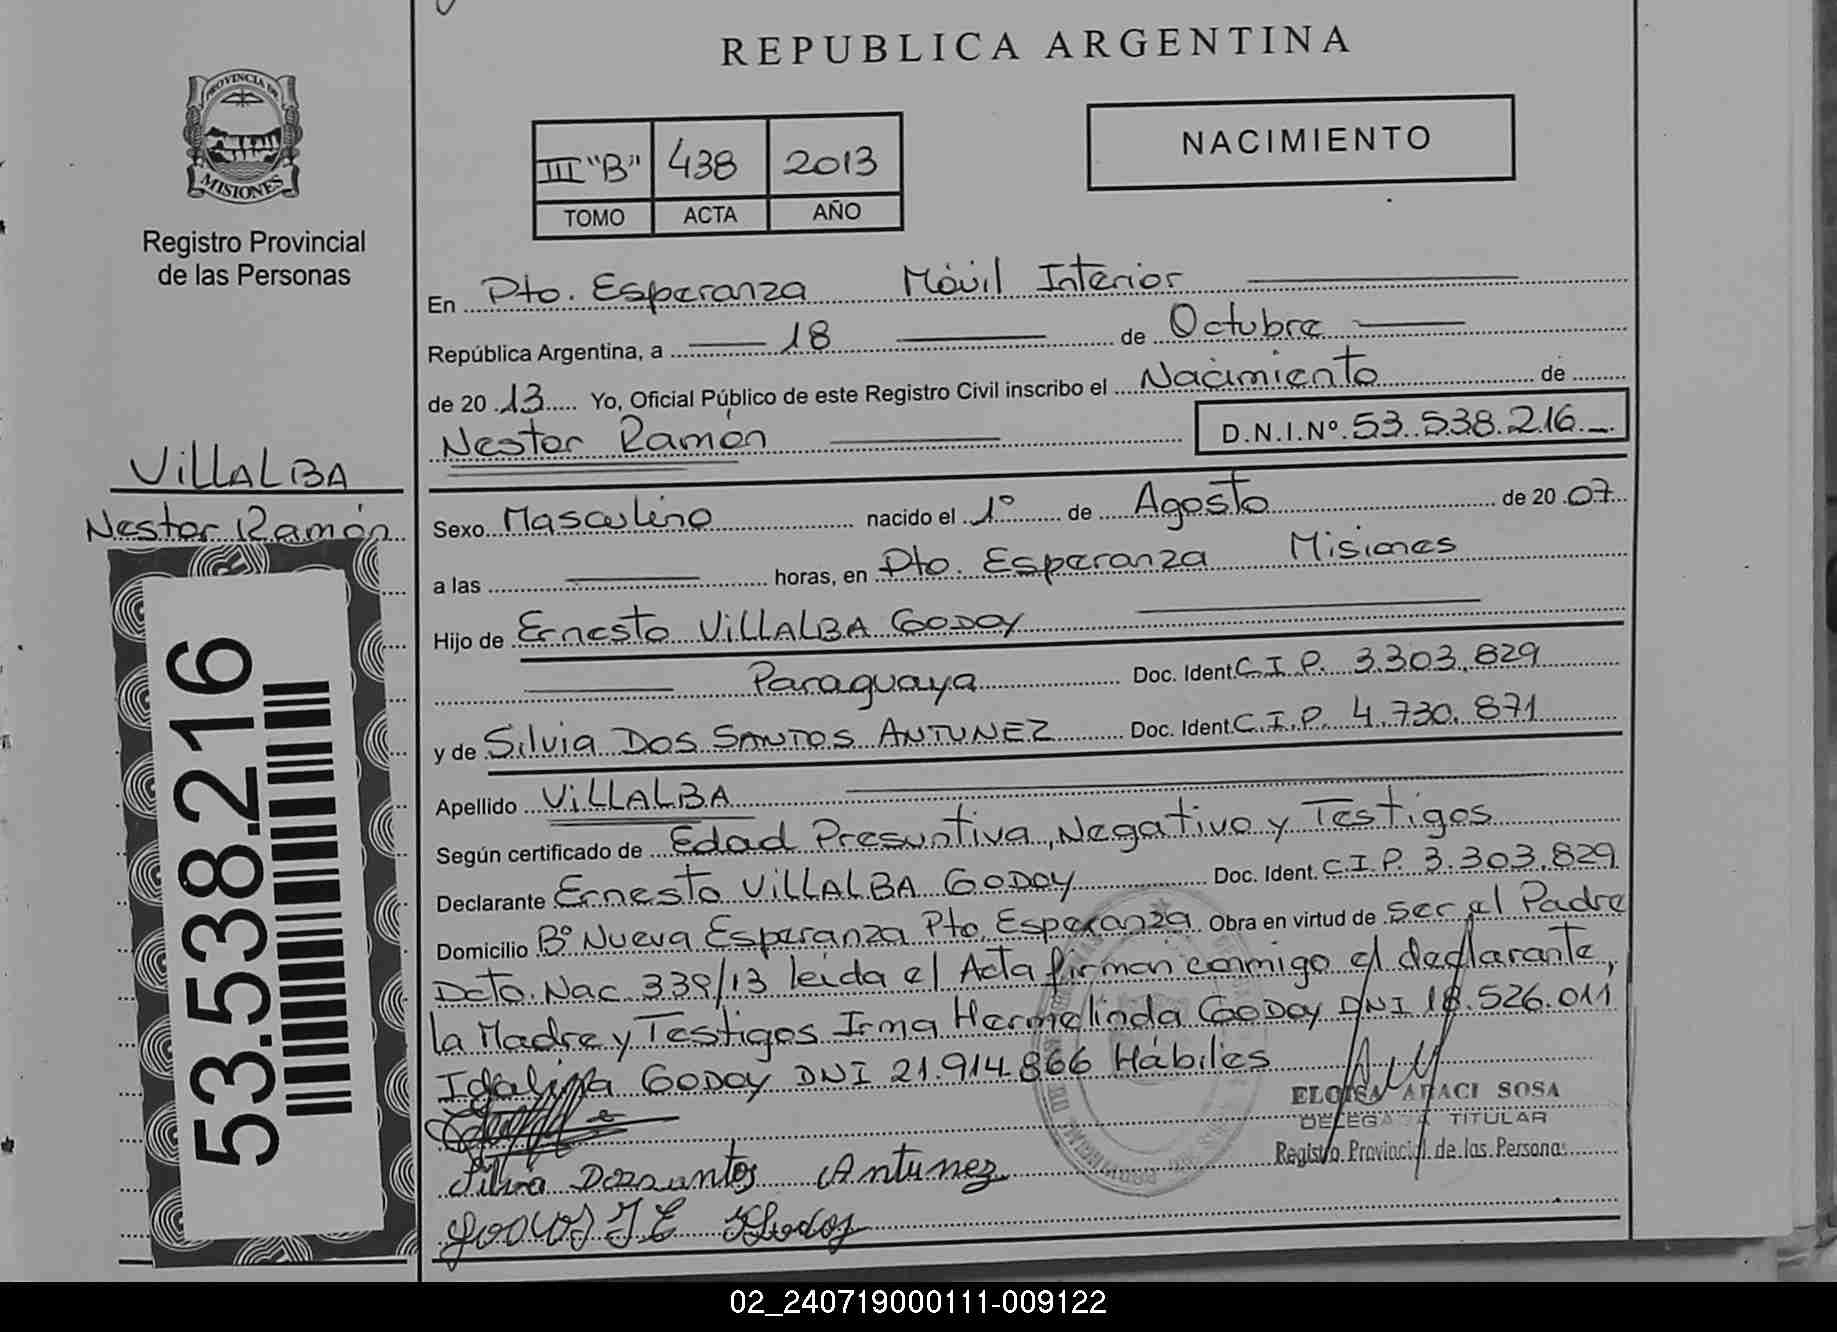 REPUBLICA ARGENTINA
PROVINCIA DE
MISIONES
Registro Provincial
de las Personas
III "B" 438 2013
TOMO ACTA AÑO
NACIMIENTO
En Pto. Esperanza Móvil Interior
República Argentina, a 18 de Octubre
de 20 13 Yo, Oficial Público de este Registro Civil inscribo el Nacimiento de
Nestor Ramón D.N.I.Nº 53.538.216
VILLALBA
Nestor Ramón
53.538.216
Sexo Masculino nacido el 1º de Agosto de 20 07
a las horas, en Pto. Esperanza Misiones
Hijo de Ernesto VILLALBA GODOY
Paraguaya Doc. Ident C.I.P. 3.303.829
y de Silvia DOS SANTOS ANTUNEZ Doc. Ident C.I.P. 4.730.871
Apellido VILLALBA
Según certificado de Edad Presuntiva, Negativo y Testigos
Declarante Ernesto VILLALBA GODOY Doc. Ident. C.I.P. 3.303.829
Domicilio Bº Nueva Esperanza Pto. Esperanza Obra en virtud de ser el Padre
Dcto. Nac. 339/13 leída el Acta firman conmigo el declarante,
la Madre y Testigos Irma Hermelinda GODOY DNI 18.526.011
Idalina GODOY DNI 21.914.866 Hábiles
ELOISA ARACI SOSA
DELEGADA TITULAR
Registro Provincial de las Personas
Silvia Dossantos Antunez
02_240719000111-009122